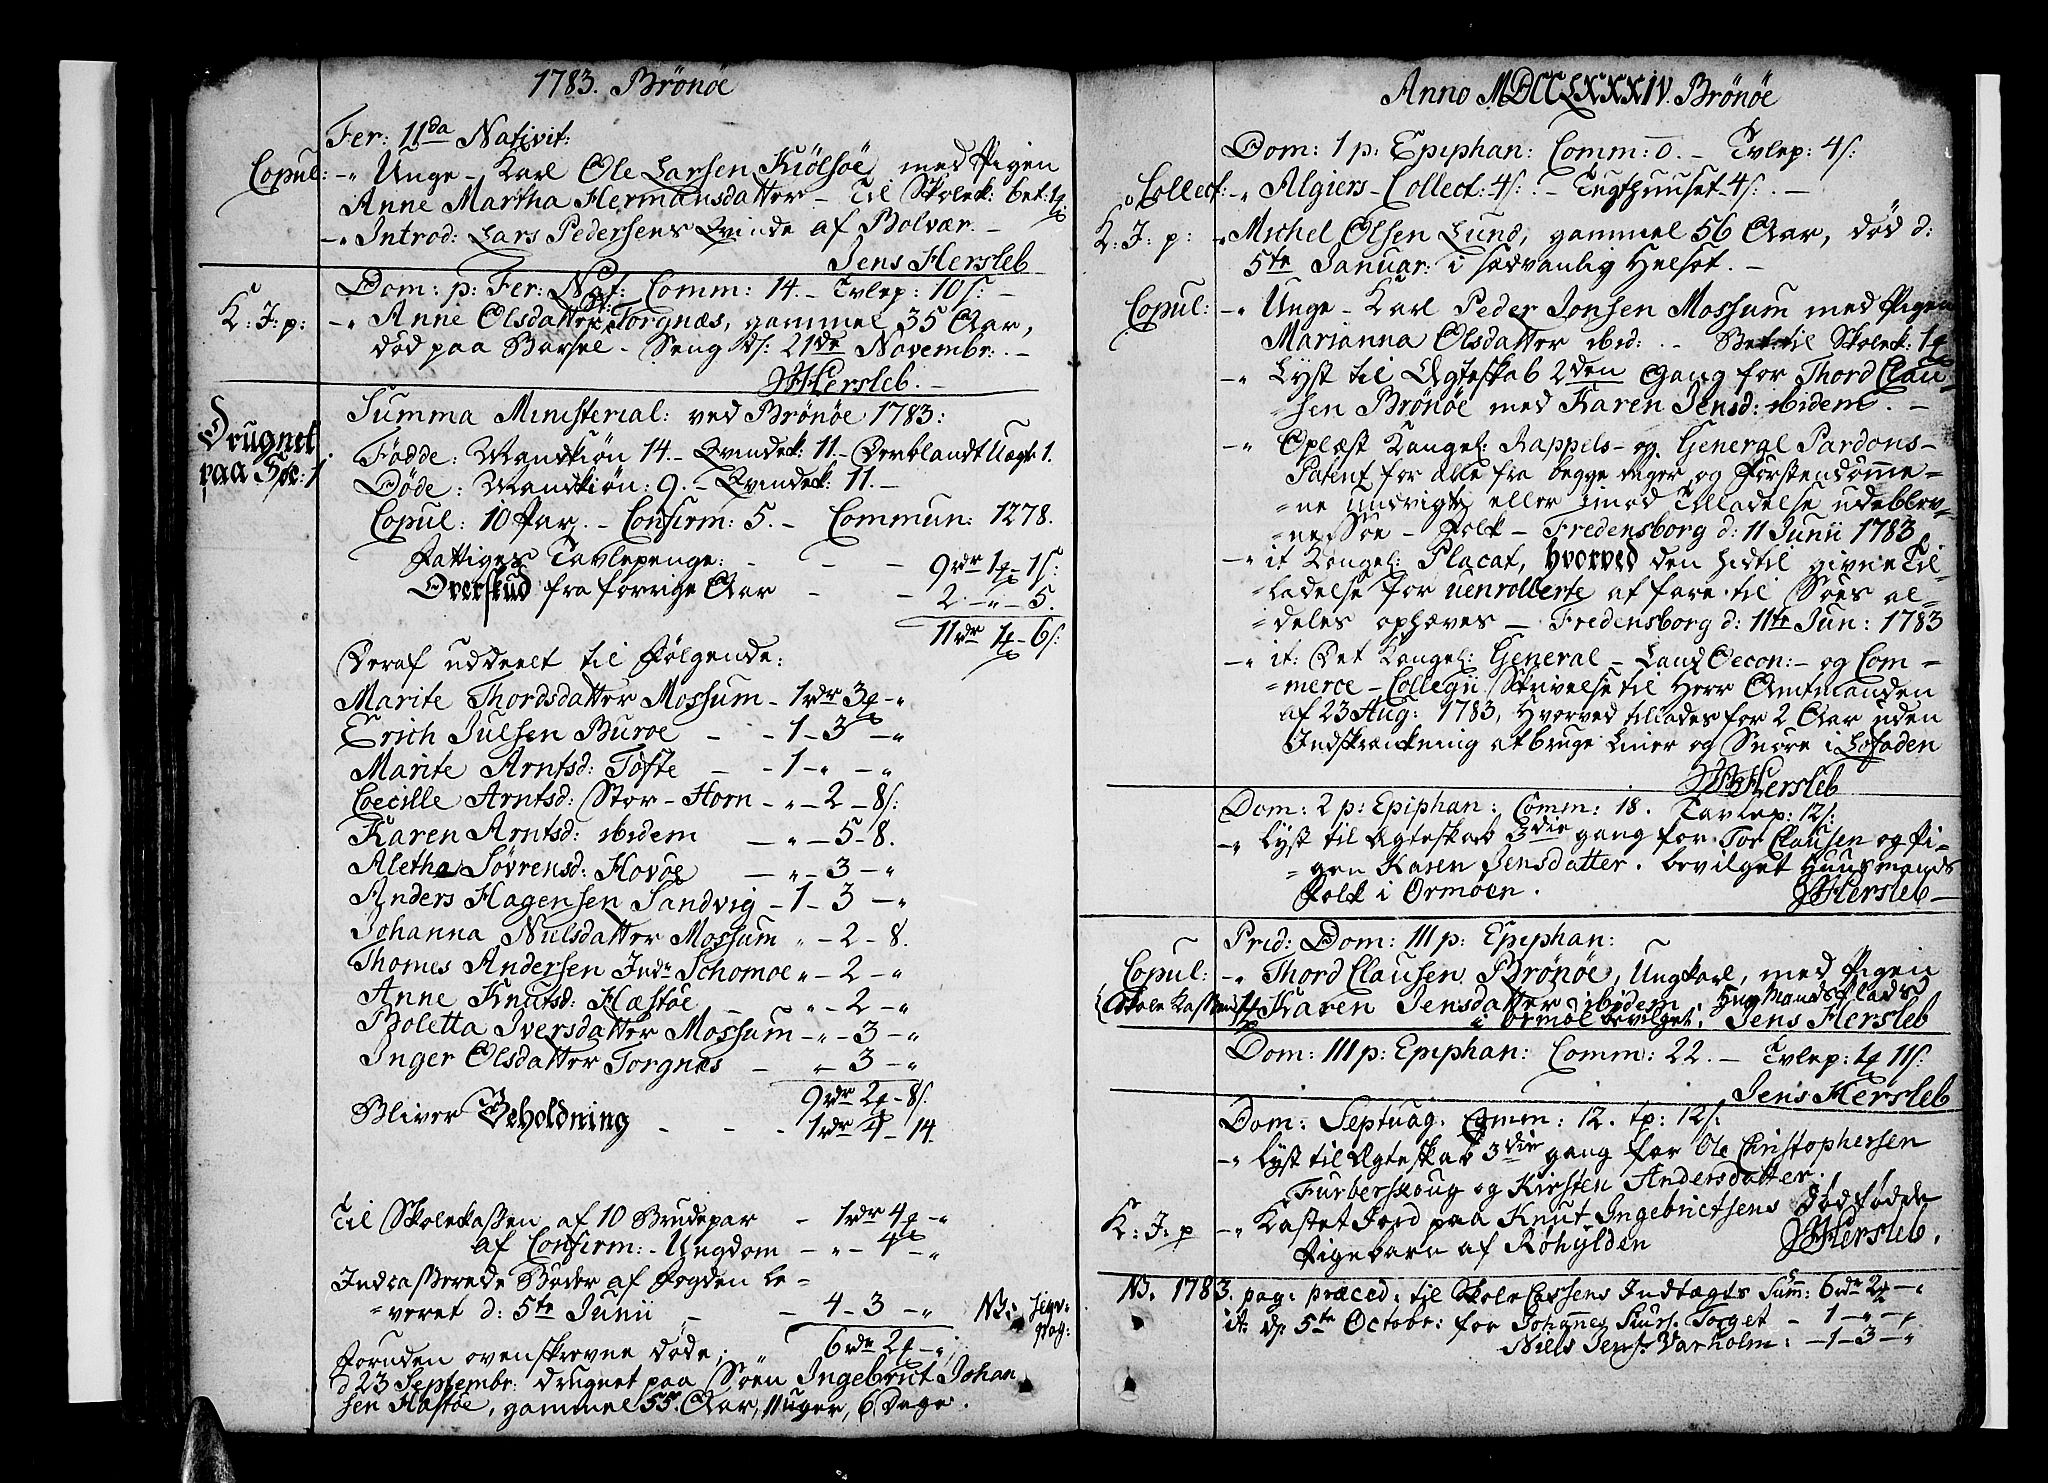 1783. Brönöe
Fer: 11da Nativit:
Copul: -„ Unge-Karl Ole Larsen Kiölsöe med Pigen
Anne Martha Hermansdatter - Til Skolek: bet: 1
-„ Introd: Lars Pedersens Qvinde af Bolvær. -
Jens Hersleb
Dom: p: Fer: Nat: Comm: 14. - Tvlep: 10ſ: -
K: J: p: -„ Anne Olsdatter Torgnæs, gammel 35 Aar,
död paa Barsel-Seng d: 21de Novembr: . -
JHHersleb. -
Summa Ministerial: ved Brönöe 1783:
Drugnet
paa Söe: 1
Födde: Mandkiön 14. - Qvindek: 11. - Deriblandt Uægte 1.
Döde: Mandkiön: 9. - Qvindek: 11. -
Copul: 10 Par. - Confirm: 5. - Commun: 1278.
Fattiges Tavlepenge: - - - 9rdr 1 - 1ſ:
Overskud fra forrige Aar - - 2 -„- 5.
11rdr 1 - 6ſ:
Deraf uddeelt til Fölgende:
Marite Thordsdatter Mossum - 1rdr 3 -„
Erich Julsen Buroe - - 1 - 3 -„
Marite Arntsd: Tofte - - 1 -„ -„
Coecille Arntsd: Stor-Horn -„- 2 - 8ſ:
Karen Arntsd: ibidem -„- 5 - 8.
Aletha Sövrensd: Hovöe -„- 3 -„
Anders Hagensen Sandvig - 1 - 3 -„
Johanna Nulsdatter Mossum „- 2 - 8.
Thomes Andersen Ind: Schomoe „- 2 -„
Anne Knutsd: Hæstöe - „- 2 -„
Boletta Iversdatter Mossum -„- 3 -„
Inger Olsdatter Torgnæs - „- 3 -„
9rdr 2 - 8ſ:
Bliver Beholdning - - - 1rdr 4 - 14.
Til Skolekassen af 10 Brudepar - 1rdr 4 -„
af Confirm: - Ungdom -„- 4 -„
Indcasserede Böder af Fogden le-
veret d: 5te Junii - - 4 - 3 -„ NB:
6dr 2 -„
Foruden ovenskrevne döde;
d 23 Septembr: drugnet paa Söen Ingebrict Johan
sen Hæstöe, gammel 55. Aar, 11 uger, 6 Dage.
Anno MDCCLXXXIV. Brönöe
Dom: 1 p: Epiphan: Comm: 0. - Tvlep: 4ſ:
Collect: -„ Algiers-Collect: 4ſ: - Tugthuuset 4ſ: . -
K: J: p: -„ Michel Olsen Lund, gammel 56 Aar, död d:
5te Januar: i sædvanlig Helsot. -
Copul: -„ Unge-Karl Peder Jonsen Mossum med Pigen
Marianna Olsdatter ibid: . - Bet: til Skolek: 1
-„ Lyst til Ægteskab 2den Gang for Thord Clau-
sen Brönöe med Karen Jensd: ibidem. -
-„ Oplæst Kongel: Rappels- og General Pardons-
Patent for alle fra begge riger og Förstendömme-
ne undvigte eller imod Tilladelse udeblev-
ne Söe-Folk - Fredensborg d: 11 Junii 1783
-„ it Kongel: Placat, hvorved den hidtil givne Til-
ladelse for uenrollerte at fare til Söes al-
deles ophæves - Fredensborg d: 11te Jun: 1783
-„ it: Det Kongel: General-Land Oecon:- og Com-
merce-Collegii Skrivelse til Herr Amtmanden
af 23 Aug: 1783, Hvorved tillades for 2 Aar uden
Indskrænkning at bruge Liner og Snöre i Lofoden
JHHersleb
Dom: 2 p: Epiphan: Comm: 18. Tavlep: 12ſ:
-„ Lyst til Ægteskab 3die gang for Tor Clausen og Pi-
gen Karen Jensdatter. bevilget Huusmands
Folk i Ormöen. JHHersleb -
Prid: Dom: III p: Epiphan:
Copul: -„ Thord Clausen Brönöe, Ungkarl, med Pigen
Karen Jensdatter ibidem. Huusmandsplads
i Ormöe bevilget. Jens Hersleb
Dom: III p: Epiphan: Comm: 22. - Tvlep: 1 11ſ:
Jens Hersleb
Dom: Septuag. Comm: 12. tp: 12ſ:
-„ Lyst til Ægteskab 3die gang for Ole Christophersen
Furberskoug og Kirsten Andersdatter.
K: J: p -„ Kastet Jord paa Knut Ingebrictsens dödfödde
Pigebarn af Röhylden JHHersleb.
NB. 1783. pag: præced: til Skole Cassens Indtægts Summ: 6dr 2 -„
it: d: 5te Octobr: for Johannes Torget - 1 -„-„
Niels Jens: Varholm: - 1 - 3 -„